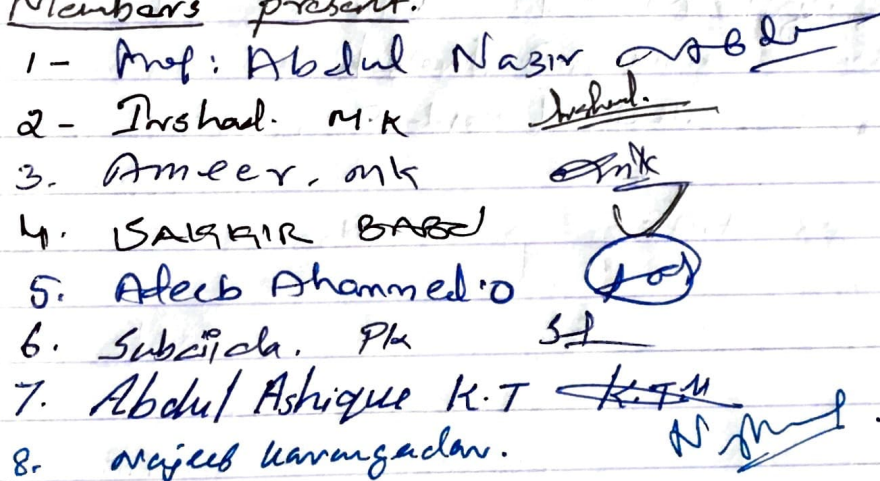 Members present.
1- Prof: Abdul Nazir
2- Irshad. M.K
3. Ameer, mk
4. SAKKIR BABU
5. Adeeb Ahammed.O
6. Subaijda. Pk
7. Abdul Ashique K.T K.T.
8. Najeeb karangadan.